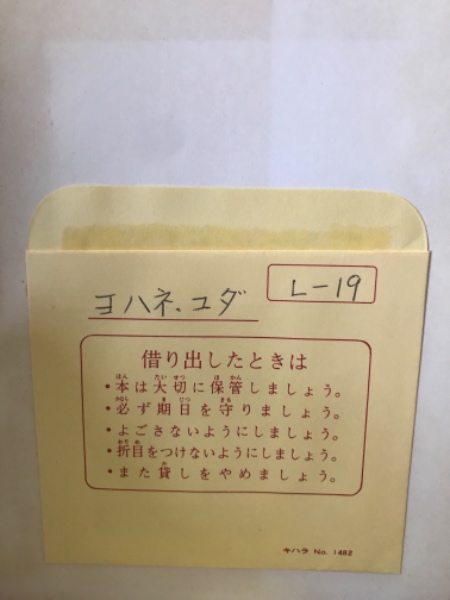 ヨハネ、ユダ
L-19
借り出したときは
・本は大切に保管しましょう。
・必ず期日を守りましょう。
・よごさないようにしましょう。
・折目をつけないようにしましょう。
・また貸しをやめましょう。
キハラ No. 1482